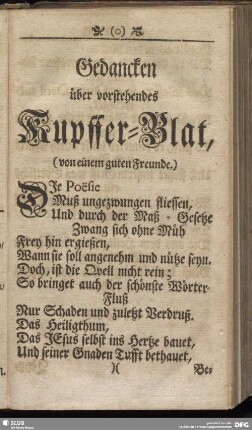 (o)
Gedancken
über vorstehendes
Kupffer-Blat,
(von einem guten Freunde.)
DIe Poësie
Muß ungezwungen fliessen,
Und durch der Maß-Gesetze
Zwang sich ohne Müh
Frey hin ergießen,
Wann sie soll angenehm und nütze seyn.
Doch, ist die Qvell nicht rein;
So bringet auch der schönste Wörter-
Fluß
Nur Schaden und zuletzt Verdruß.
Das Heiligthum,
Das JEsus selbst ins Hertze bauet,
Und seiner Gnaden Tufft bethauet,
)( Bey
SLUB
DFG